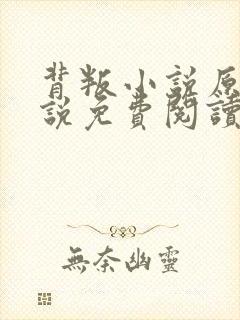 背叛小說原
說免費閱讀
無奈幽靈